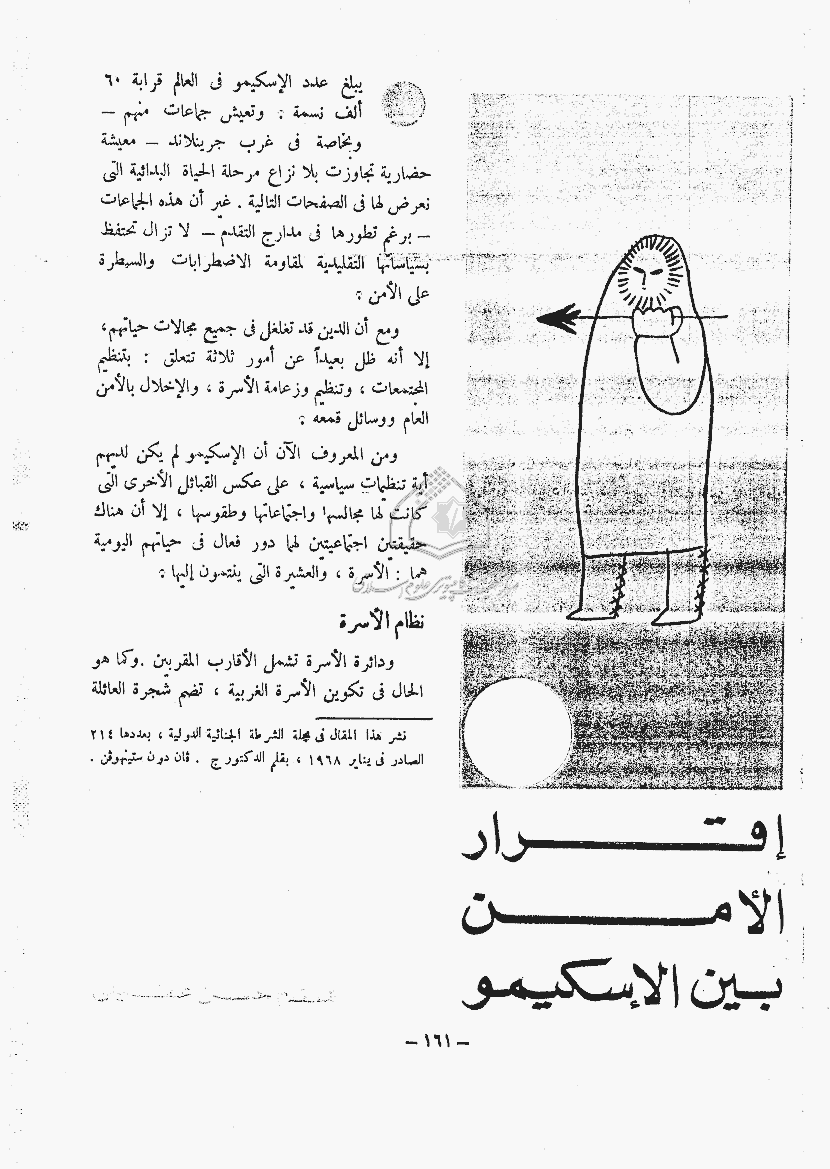 إقرار
الأمن
بين الإسكيمو
يبلغ عدد الإسكيمو فى العالم قرابة ٦٠
ألف نسمة . وتعيش جماعات منهم —
وبخاصة فى غرب جرينلاند — معيشة
حضارية تجاوزت بلا نزاع مرحلة الحياة البدائية التى
نعرض لها فى الصفحات التالية . غير أن هذه الجماعات
— برغم تطورها فى مدارج التقدم — لا تزال تحتفظ
بسياساتها التقليدية لمقاومة الاضطرابات والسيطرة
على الأمن .
ومع أن الدين قد تغلغل فى جميع مجالات حياتهم،
إلا أنه ظل بعيداً عن أمور ثلاثة تتعلق : بتنظيم
المجتمعات ، وتنظيم وزعامة الأسرة ، والإخلال بالأمن
العام ووسائل قمعه .
ومن المعروف الآن أن الإسكيمو لم يكن لديهم
أية تنظيمات سياسية ، على عكس القبائل الأخرى التى
كانت لها مجالسها واجتماعاتها وطقوسها ، إلا أن هناك
حقيقتين اجتماعيتين لهما دور فعال فى حياتهم اليومية
هما : الأسرة ، والعشيرة التى ينتمون إليها .
نظام الأسرة
ودائرة الأسرة تشمل الأقارب المقربين . وكما هو
الحال فى تكوين الأسرة الغربية ، تضم شجرة العائلة
نشر هذا المقال فى مجلة الشرطة الجنائية الدولية ، بعددها ٢١٤
الصادر فى يناير ١٩٦٨ ، بقلم الدكتور ج . فان دون ستينهوفن .
— ١٦١ —